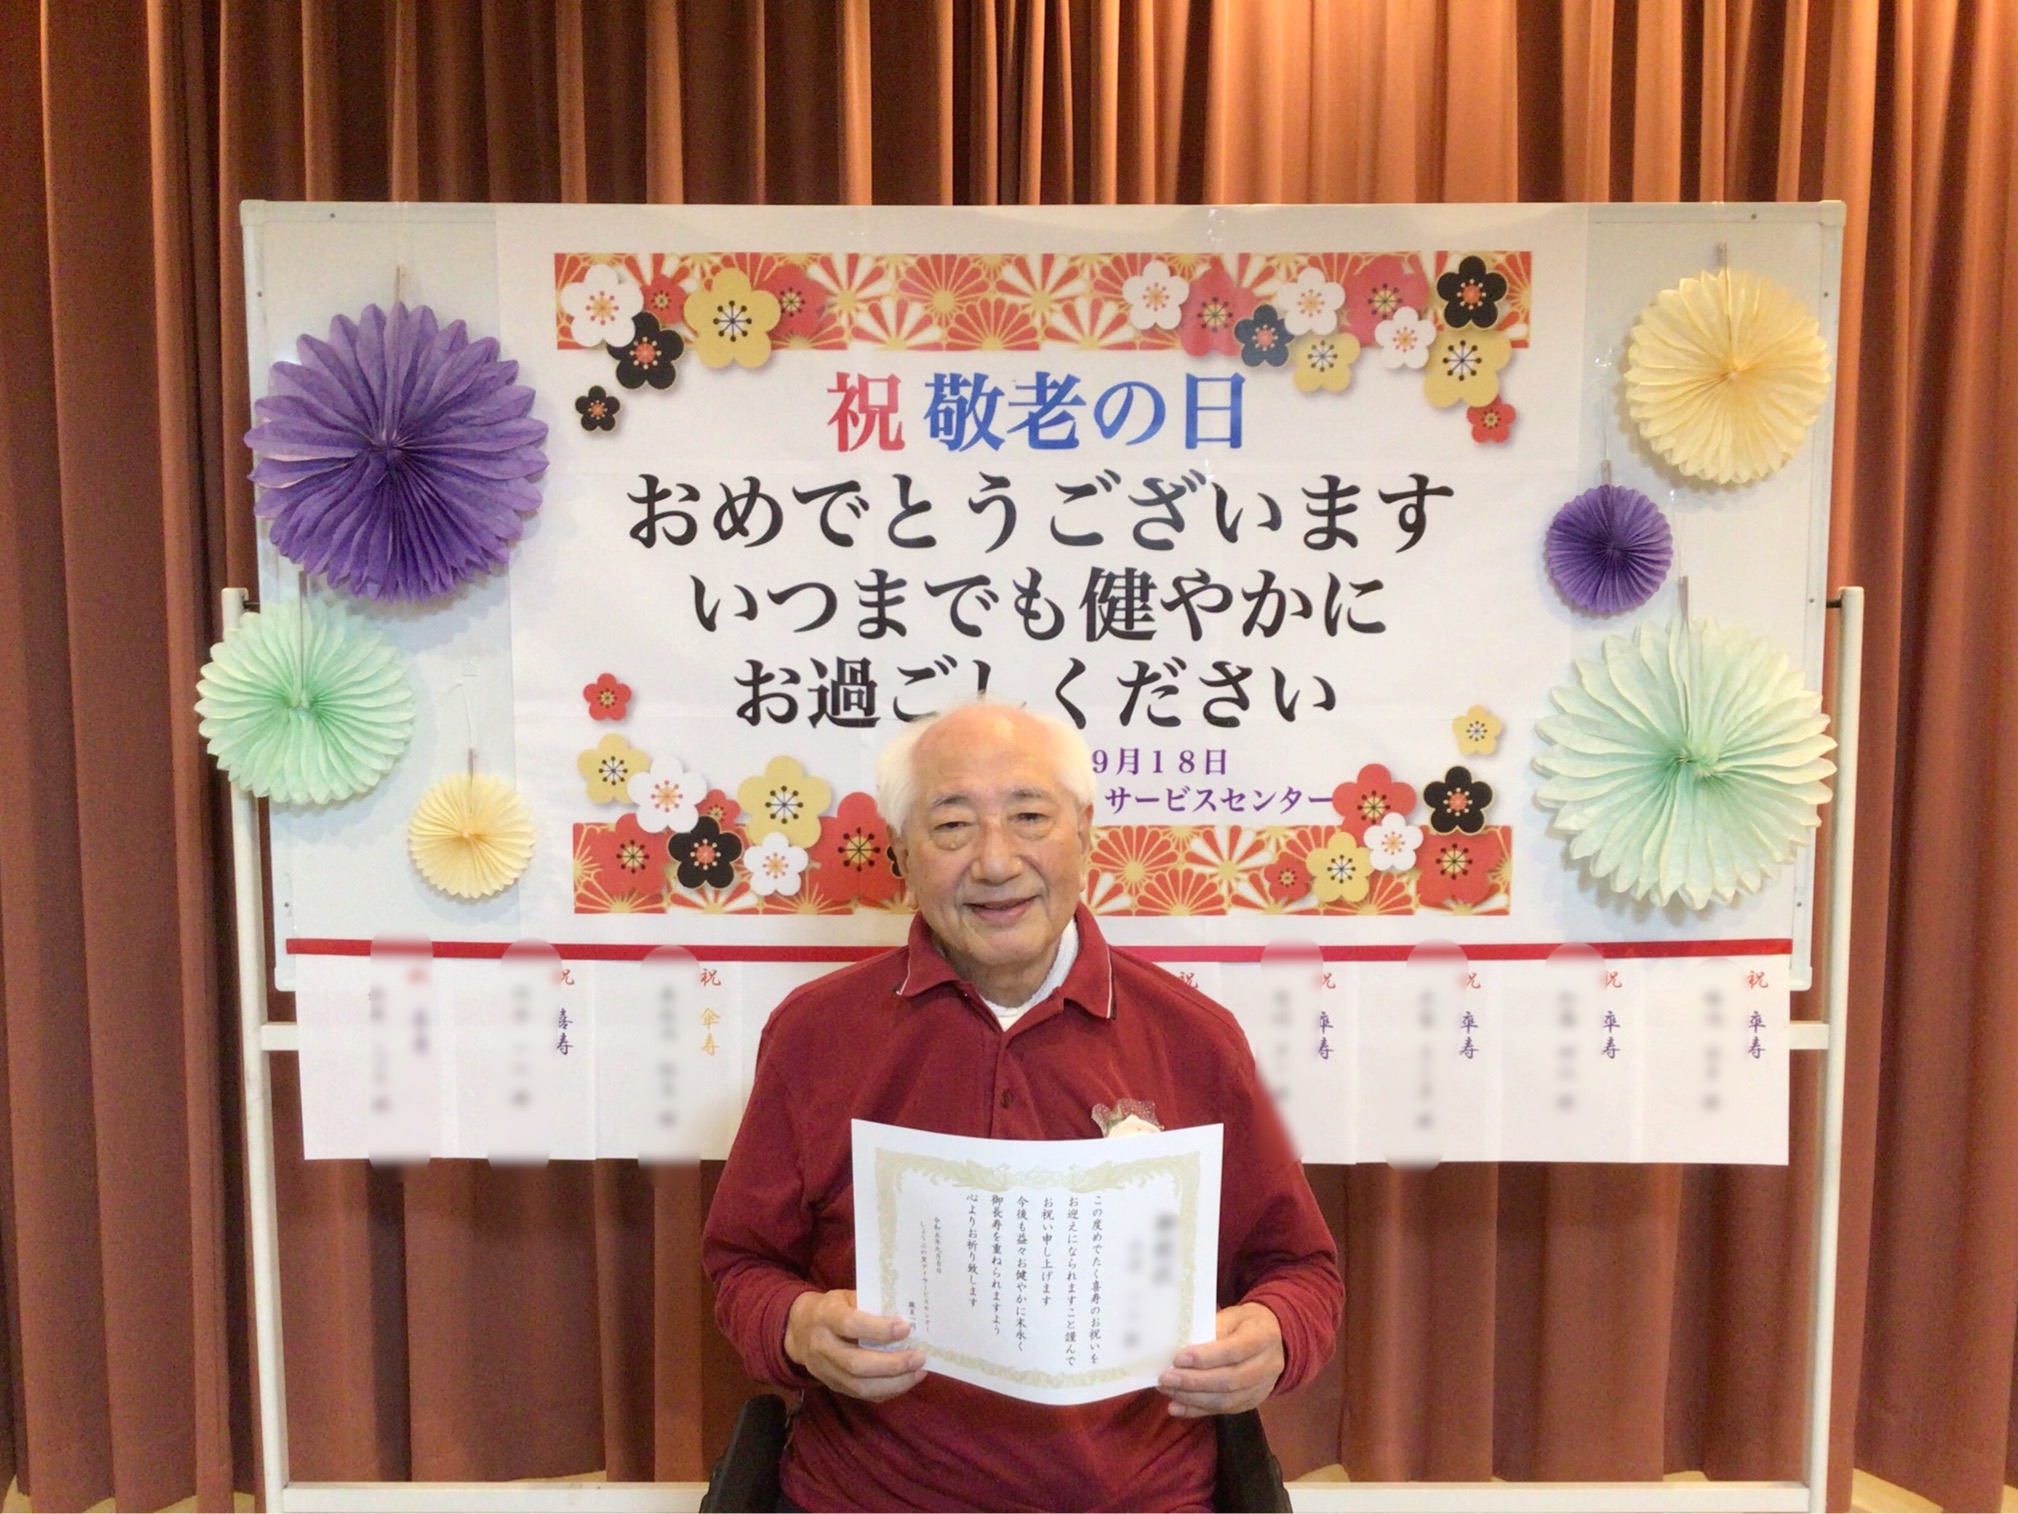 祝 敬老の日
おめでとうございます
いつまでも健やかに
お過ごしください
9月18日
サービスセンター
祝
喜寿
祝
傘寿
祝
祝
卒寿
祝
卒寿
祝
卒寿
祝
卒寿
この度めでたく喜寿のお祝いを
お迎えになられますこと謹んで
お祝い申し上げます
今後も益々お健やかに末永く
御長寿を重ねられますよう
心よりお祈り致します
令和五年九月吉日
デイサービスセンター
職員一同